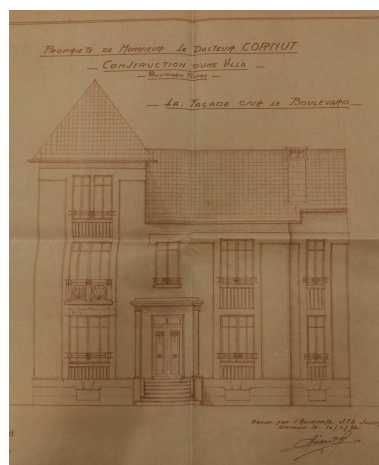 PROPRIETE DE MONSIEUR LE DOCTEUR CORNUT
CONSTRUCTION D'UNE VILLA
BOULEVARD
LA FAÇADE SUR LE BOULEVARD
Dressé par l'Architecte